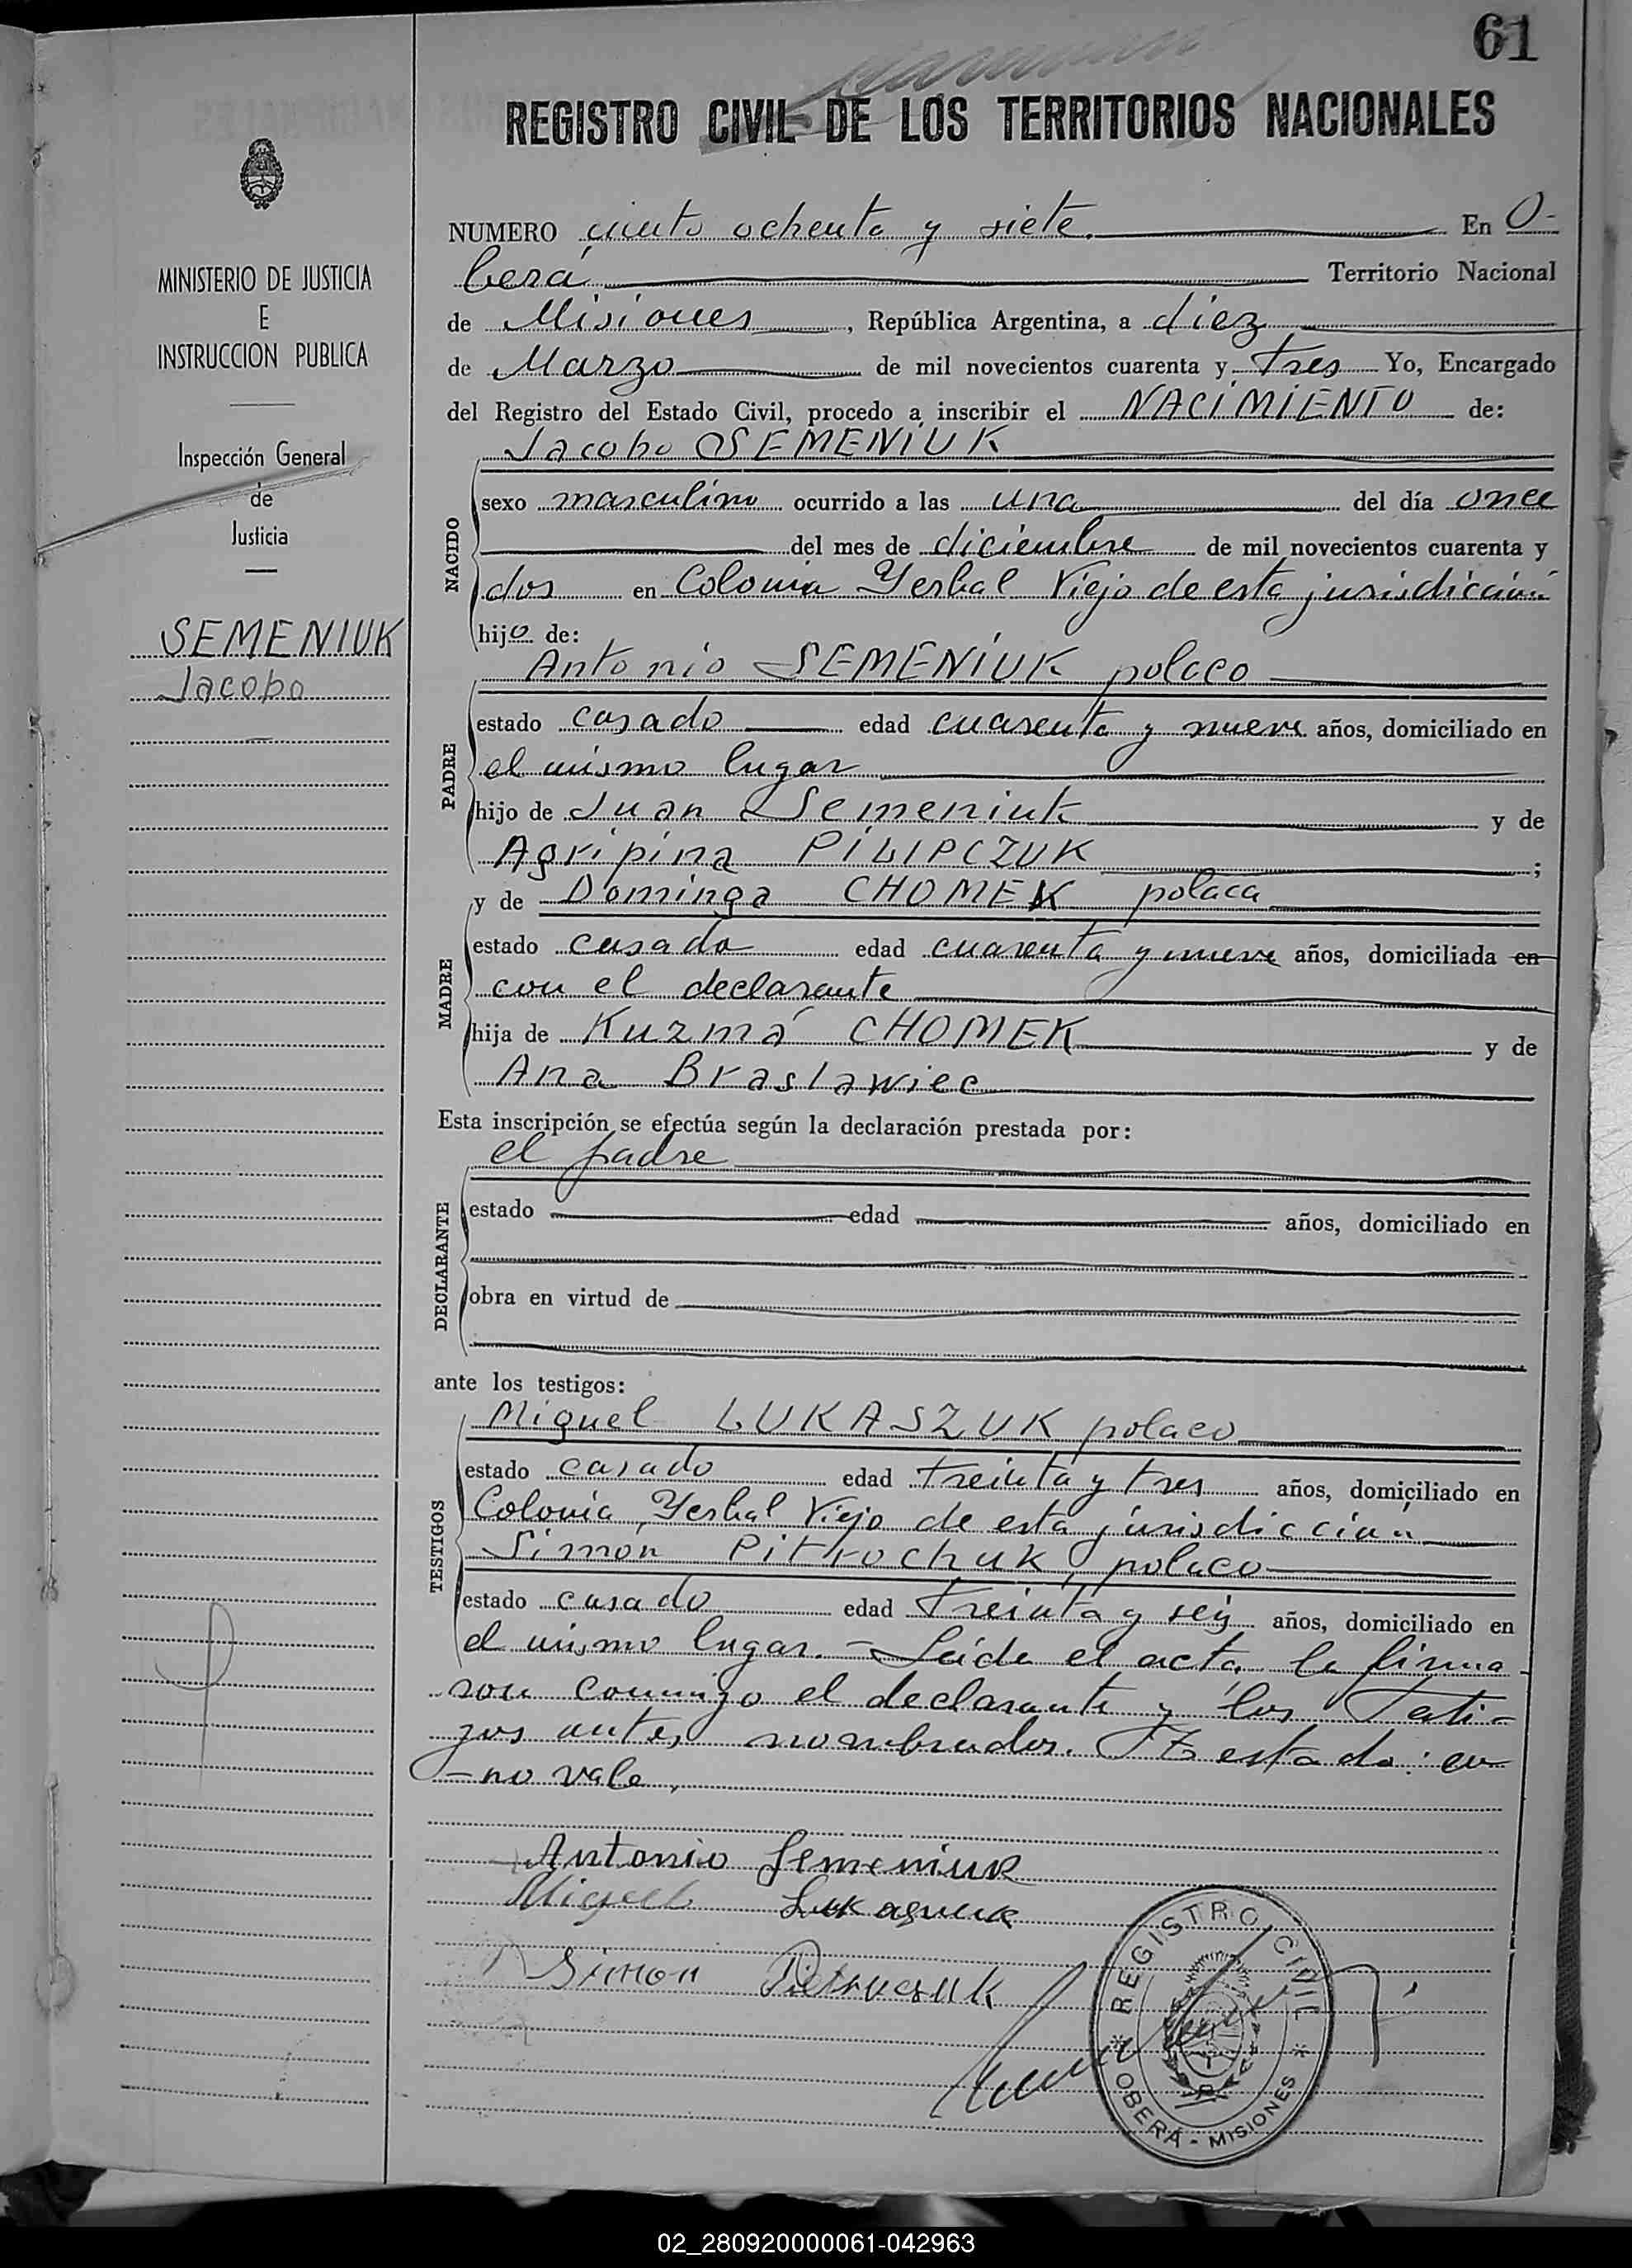 61
REGISTRO CIVIL DE LOS TERRITORIOS NACIONALES
MINISTERIO DE JUSTICIA
E
INSTRUCCION PUBLICA
Inspección General
de
Justicia
SEMENIUK
Jacobo
NUMERO ciento ochenta y siete. En O-
berá Territorio Nacional
de Misiones, República Argentina, a diez
de Marzo de mil novecientos cuarenta y tres Yo, Encargado
del Registro del Estado Civil, procedo a inscribir el NACIMIENTO de:
Jacobo SEMENIUK
NACIDO
sexo masculino ocurrido a las una del día once
del mes de diciembre de mil novecientos cuarenta y
dos en Colonia Yerbal Viejo de esta jurisdicción
hijo de:
Antonio SEMENIUK polaco
PADRE
estado casado edad cuarenta y nueve años, domiciliado en
el mismo lugar
hijo de Juan Semeniuk y de
Agripina PILIPCZUK ;
y de Dominga CHOMEK polaca
MADRE
estado casada edad cuarenta y nueve años, domiciliada en
con el declarante
hija de Kuzmá CHOMEK y de
Ana Braslawiec
Esta inscripción se efectúa según la declaración prestada por:
el padre
DECLARANTE
estado edad años, domiciliado en
obra en virtud de
ante los testigos:
Miguel LUKASZUK polaco
TESTIGOS
estado casado edad treinta y tres años, domiciliado en
Colonia Yerbal Viejo de esta jurisdicción
Simon Pitrochuk polaco
estado casado edad treinta y seis años, domiciliado en
el mismo lugar.- Leída el acta, la firma
ron conmigo el declarante y los Testi-
gos antes nombrados. Testado: en
-no vale.
Antonio Semeniuk
Miguel
Simon Pietruczuk
REGISTRO CIVIL
* OBERÁ - MISIONES *
02_280920000061-042963